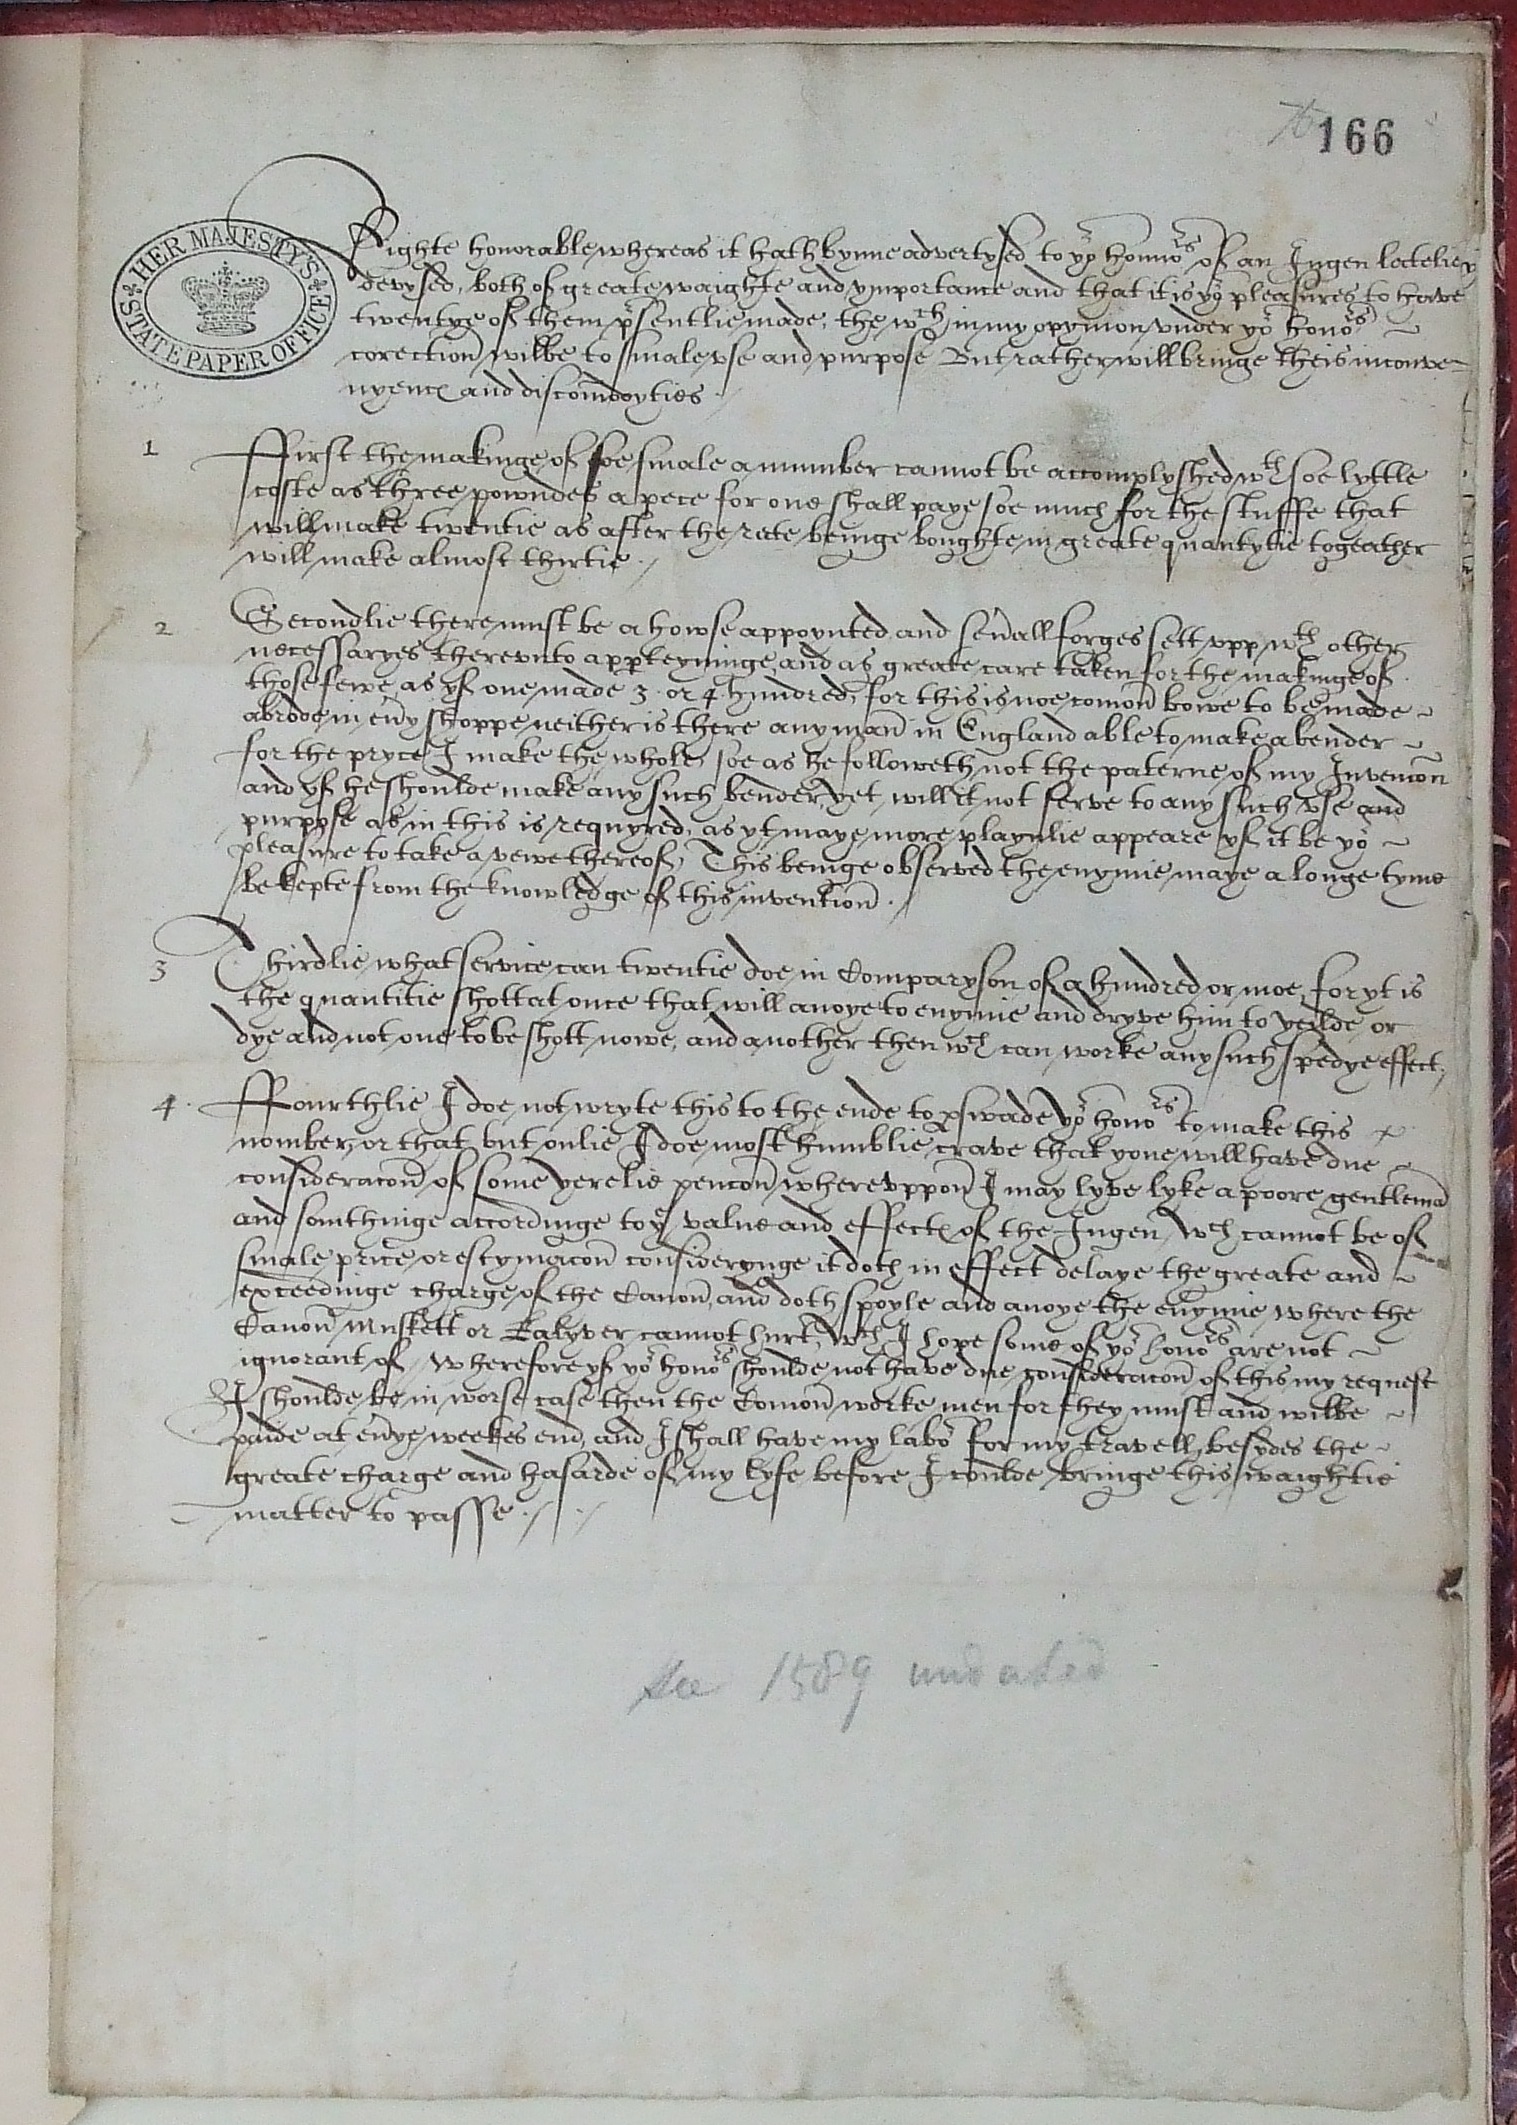 166
HER MAJESTY'S
STATE PAPER OFFICE
Righte honorable whereas it hath bynne advertysed to yor honnors of an Ingen latelie
devysed, both of greate waighte and ymportance and that it is yor pleasures to have
twentye of them psentlie made, the wch in my opynion vnder yor honors ~
corection wilbe to smale vse and purpose But rather will bringe theis inconve=
nyencs and discomodyties.
1 Ffirst the makinge of soe smale a number cannot be accomplyshed wth soe lyttle
coste as three powndes a pece for one shall paye soe much for the stuffe that
will make twentie as after the rate beinge boughte in greate quantytie togeather
will make almost thirtie ./
2 Secondlie there must be a howse appoynted and seuall forges sett vpp wth other
necessaryes therevnto apperteyninge, and as greate care taken for the makinge of
those fewe, as yf one made 3 or 4 hundred, for this is noe comon bowe to be made ~
abrode in euy shoppe neither is there any man in England able to make a bender ~
for the pryce I make the whole, soe as he followeth not the paterne of my Invencon
and yf he shoulde make any such bender yet will it not serve to any such vse and
purpose as in this is requyred, as yt maye more playnlie appeare yf it be yor ~
pleasure to take a vewe thereof, This beinge observed the enymie maye a longe tyme
be kepte from the knowledge of this invention ./
3 Thirdlie what service can twentie doe in Comparyson of a hundred or moe, for yt is
the quantitie shott at once that will anoye to enymie and dryve him to yeilde or
dye and not one to be shott nowe, and another then wch can worke any such spedye effect,
4. Ffourthlie I doe not wryte this to the ende to pswade yor honors to make this
nomber, or that, but onlie I doe most humblie crave that youe will have due ~
consideracon of some yerelie pencon wherevppon I may lyve lyke a poore gentleman
and somthinge accordinge to ye value and effects of the Ingen, Wch cannot be of
smale price, or estymacon considerynge it doth in effect delaye the greate and ~
exceedinge charge of the Canon, and doth spoyle and anoye the enymie where the
Canon Muskett or Calyver cannot hurt, Wch I hope some of yor honors are not ~
ignorant of, Wherefore yf yor honors shoulde not have due consideracon of this my request
I shoulde be in worse case then the Comon worke men for they must and wilbe ~
paide at euye weekes end, and I shall have my labor for my travell, besydes the ~
greate charge and hasarde of my lyfe before I coulde bringe this waightie
matter to passe ./
See 1589 undated